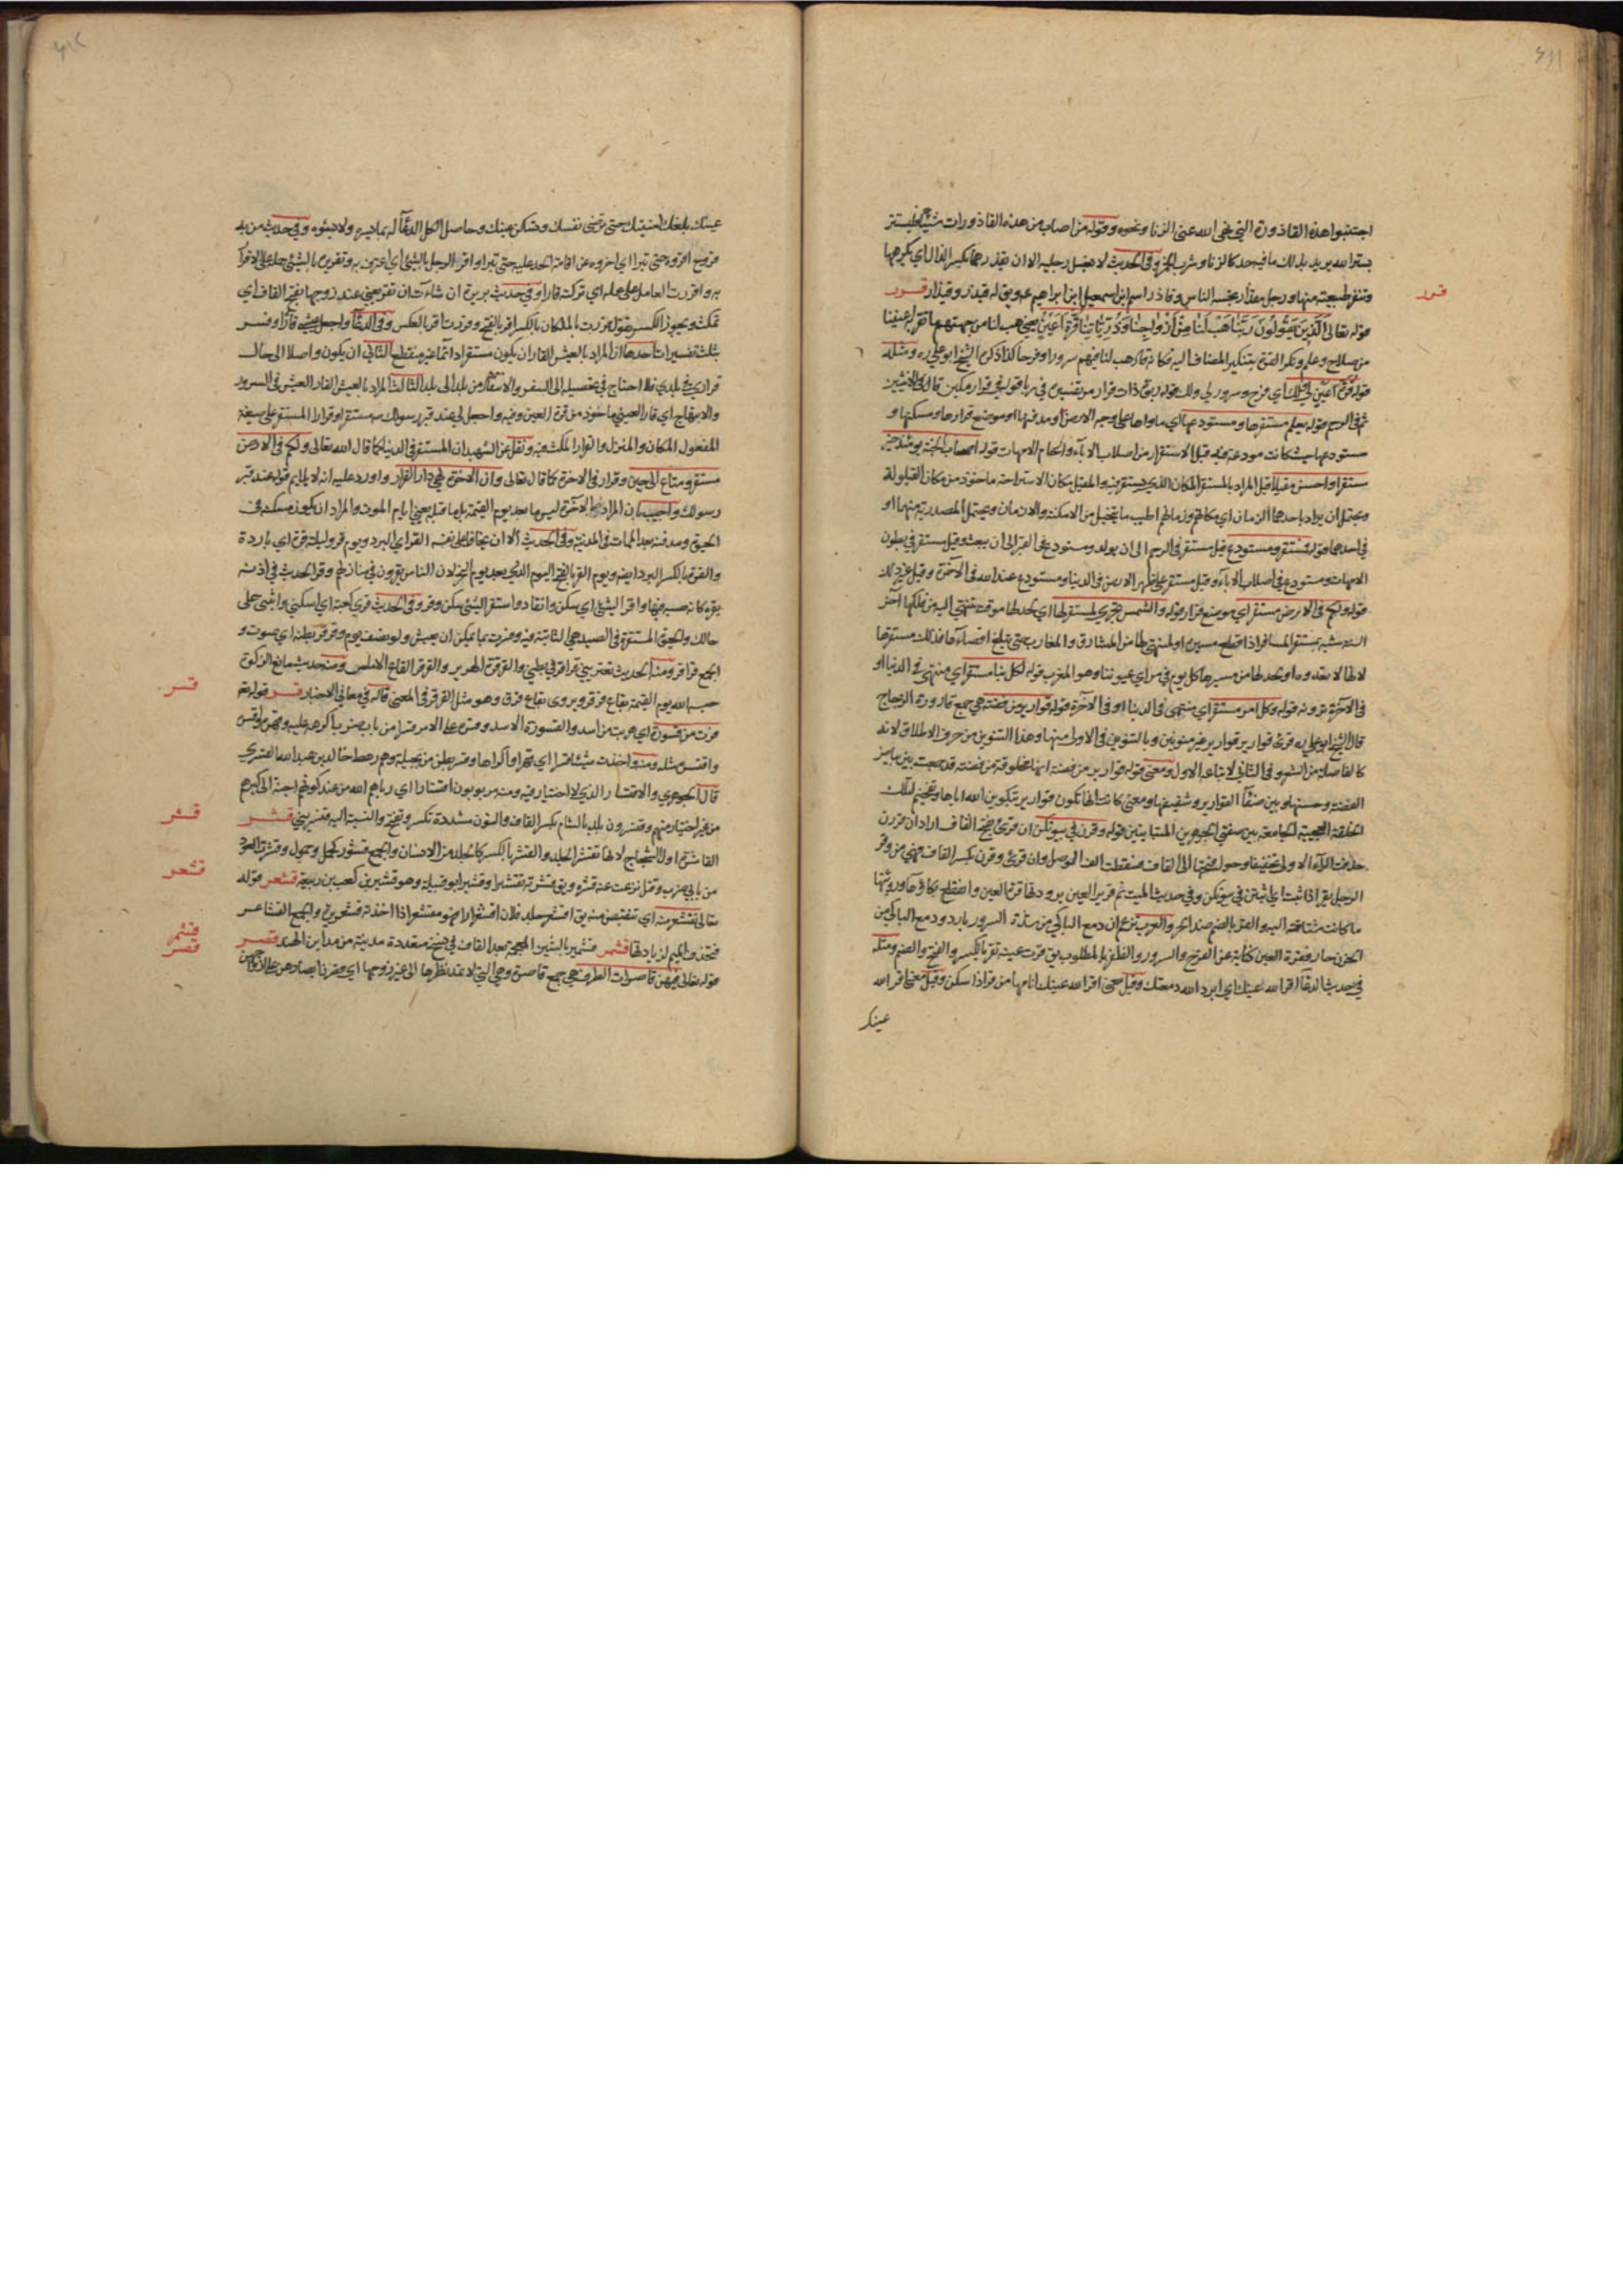 ٤١١
اجتنبوا هذه القاذورة التي نهى الله عنى الزنا ونحوه وقوله من اصاب من هذه القاذورات شيئا فليستتر
بستر الله يريد بذلك ما فيه حد كالزنا وشرب الخمر وفى الحديث لا يغسل رجليه الا ان يقذرهما بكسر الذال اى يكرهها
وتنفر طبيعته منها ورجل مقذار يجتنبه الناس وقاذر اسم ابن اسمعيل ابن ابراهيم ع ويق له قيذر وقيذار قرر
قرر
قوله تعالى الَّذِينَ يَقُولُونَ رَبَّنَا هَبْ لَنَا مِنْ أَزْوَاجِنَا وَذُرِّيَّاتِنَا قُرَّةَ أَعْيُنٍ يعنى هب لنا من جهتهم ما تقر به اعيننا
من صلاح وعلم ونكر القرة بتنكير المضاف اليه فكانه قال هب لنا فيهم سرورا وفرحا كذا ذكره الشيخ ابو على ره ومثله
قوله قرة عين لي ولك اى فرح وسرور لي ولك قوله ربوة ذات قرار قوله في قرار مكين
في الرحم قوله يعلم مستقرها ومستودعها اى ماواها على وجه الارض ومدفنها او موضع قرارها ومسكنها و
مستودعها حيث كانت مودعة فيه قبل الاستقرار من اصلاب الآباء وارحام الامهات قوله اصحاب الجنة يومئذ خير
مستقرا واحسن مقيلا قيل المراد بالمستقر المكان الذي يستقر فيه والمقيل مكان الاستراحة ماخوذ من مكان القيلولة
ويحتمل ان يراد باحدهما الزمان اى مكانهم وزمانهم اطيب ما يتخيل من الامكنة والازمان ويحتمل المصدرية فيهما او
في احدهما قوله فمستقر ومستودع قيل مستقر فى الرحم الى ان يولد ومستودع فى القبر الى ان يبعث وقيل مستقر في بطون
الامهات ومستودع في اصلاب الآباء وقيل مستقر على ظهر الارض فى الدنيا ومستودع عند الله فى الآخرة وقيل غير ذلك
قوله ولكم فى الارض مستقر اى موضع قرار قوله والشمس تجري لمستقر لها اى لحد لها موقت تنتهي اليه من فلكها آخر
السنة شبه بمستقر المسافر اذا قطع مسيره او لمنتهى لها من المشارق والمغارب حتى تبلغ اقصاها فذلك مستقرها
لانها لا تعدوه او لحد لها من مسيرها كل يوم في مراى عيوننا وهو المغرب قوله لكل نبا مستقر اى منتهى فى الدنيا او
فى الآخرة ترونه قوله وكل امر مستقر اى منتهى فى الدنيا او فى الآخرة قوله قوارير من فضة هي جمع قارورة الزجاج
قال الشيخ ابو على ره قرئ قوارير قوارير غير منونين وبالتنوين فى الاول منهما وهذا التنوين من حرف الاطلاق لانه
كالفاصلة من الشعر وفى الثانى لاتباعه الاول ومعنى قوله قوارير من فضة انها مخلوقة من فضة قد جمعت بين بياض
الفضة وحسنها وبين صفاء القوارير وشفيفها ومعنى كانت انها تكون قوارير بتكوين الله اياها وتفخيم لتلك
الخلقة العجيبة الجامعة بين صفتى الجوهرين المتباينين قوله وقرن في بيوتكن ان قرئ بفتح القاف اراد ان قررن
حذفت الراء الاولى تخفيفا وحول فتحتها الى القاف فسقطت الف الوصل وان قرئ وقرن بكسر القاف فهى من وقر
الرجل يقر اذا ثبت اى اثبتن في بيوتكن وفي حديث الميت ثم قرير العين برودتها قرة العين وانقطاع بكائها ورؤيتها
ما كانت مشتاقة اليه والقر بالضم ضد الحر والعرب تزعم ان دمع الباكي من شدة السرور بارد ودمع الباكي من
الحزن حار فقرة العين كناية عن الفرح والسرور والظفر بالمطلوب يق قرت عينه تقر بالكسر والفتح والضم ومثله
في حديث الدعاء اقر الله عينك اى ابرد الله دمعتك وقيل معنى اقر الله عينك انامها من قر اذا سكن وقيل معنى اقر الله
عينك
٤١٢
عينك بلغك امنيتك حتى ترضى نفسك وتسكن عينك وحاصل الكل الدعاء له بما يسره ولا يسوءه وفي حديث من بد
اى اخروه عن اقامة الحد عليه حتى تبرا واقر الرجل بالشئ اى اعترف به وتقرير بالشئ حمله على الاقرار
به واقررت العامل على عمله اى تركته قارا وفي حديث بريرة ان شاءت ان تقر يعنى عند زوجها بفتح القاف اى
تمكث ويجوز الكسر قوله قررت بالمكان بالكسر اقر بالفتح وقررت اقر بالعكس وفى الدعاء واجعل عيشى قارا وفسر
بثلثة تفسيرات احدها ان المراد بالعيش القار ان يكون مستقرا دائما غير منقطع الثانى ان يكون واصلا الى حال
قراري في بلدي فلا احتاج في تحصيله الى السفر والانتقال من بلد الى بلد الثالث المراد بالعيش القار العيش فى السرور
والابتهاج اى قار العين ماخوذ من قرة العين وفيه واجعل لي عند قبر رسولك مستقرا وقرارا المستقر على صيغة
المفعول المكان والمنزل والقرار المكث فيه ونقل عن الشهيد ان المستقر فى الدنيا كما قال الله تعالى ولكم فى الارض
مستقر ومتاع الى حين وقرار فى الآخرة كما قال تعالى وان الآخرة هي دار القرار واورد عليه انه لا يلايم قوله عند قبر
رسولك واجيب بان المراد بالآخرة ليس ما بعد يوم القيمة بل ما قبله يعنى ايام الموت والمراد ان يكون مسكنه فى
الحيوة ومدفنه بعد الممات فى المدينة وفى الحديث الا ان يخاف على نفسه القر اى البرد ويوم قر وليلة قرة اى باردة
والقرة بالكسر البرد ايضا ويوم القر بالفتح اليوم الذي بعد يوم النحر لان الناس يقرون في منازلهم وقر الحديث في اذنه
يقره كانه صبه فيها واقر الشئ اى سكن وانقاد واستقر الشئ سكن وقر وفى الحديث قري كعبة اى اسكني واثبتي على
حالك والحيوة المستقرة فى الصيد هي الثابتة فيه وفسرت بما يمكن ان يعيش ولو نصف يوم وقرقر بطنه اى صوت و
الجمع قراقر ومنه الحديث تعتريني قراقر في بطني والقرقرة الهدير والقرقر القاع الاملس ومنه حديث مانع الزكوة
حبسه الله يوم القيمة بقاع قرقر ويروى بقاع قرق وهو مثل القرقر فى المعنى قاله في معاني الاخبار قسر قوله تعه
قسر
فرت من قسورة اى هربت من اسد والقسورة الاسد وقسره على الامر قسرا من باب ضرب اكرهه عليه وقهره
واقتسره مثله ومنه اخذت شيئا قسرا اى قهرا واكراها وقسر بطن من بجيلة وهم رهط خالد بن عبد الله القسري
قال الجوهري والاقتسار الذي لا اختيار فيه ومنه مربوبون اقتسارا اى رباهم الله من عند كونهم اجنة الى كبرهم
من غير اختيار منهم وقنسرون بلد بالشام بكسر القاف والنون مشددة تكسر وتفتح والنسبة اليه قنسريني قشر
قشر
القاشرة اول الشجاج لانها تقشر الجلد والقشر بالكسر كالجلد من الانسان والجمع قشور كحمل وحمول وقشرت العود
من بابي ضرب وقتل نزعت عنه قشره ويق قشرته تقشيرا وقشير ابو قبيلة وهو قشير بن كعب بن ربيعة قشعر قوله
قشعر
تعالى تقشعر منه اى تنقبض منه يق اقشعر جلد فلان اقشعرارا فهو مقشعر اذا اخذته قشعريرة والجمع القشاعر
فتحذف الميم لزيادتها قشمر قشمير بالشين المعجمة بعد القاف في نسخ متعددة مدينة من مداين الهند قصر
قشمر
قصر
قوله تعالى فيهن قاصرات الطرف هي جمع قاصرة وهي التى لا تمد نظرها الى غير زوجها اى قصرن ابصارهن على ازواجهن